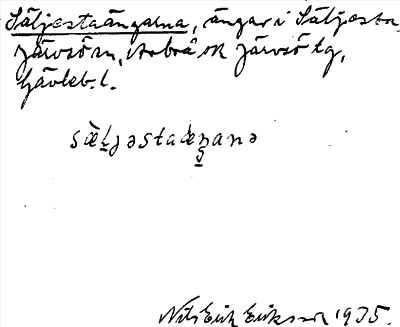 Säljestaängarna, ängar i Säljesta,
Järvsö sn, Arbrå ok Järvsö tg,
Gävleb. l.
sæ̀ḷjəstaæŋ̣anə
Nils Erik Eriksson 1935.